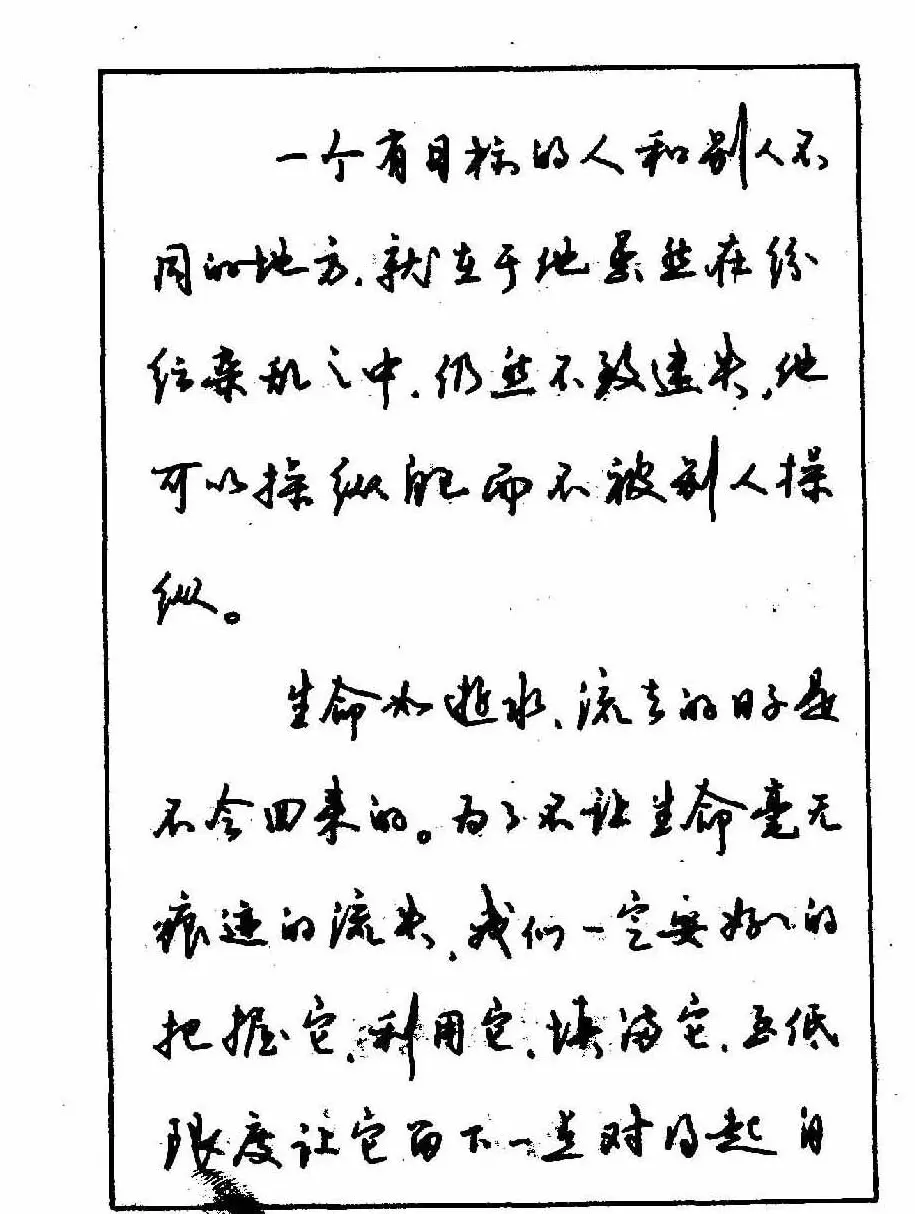 一个有目标的人和别人不
同的地方，就在于他虽然在纷
纭杂乱之中，仍然不致迷失，他
可以操纵自己而不被别人操
纵。
生命如逝水，流去的日子是
不会回来的。为了不让生命毫无
痕迹的流失，我们一定要好好的
把握它，利用它，填满它，至低
限度让它留下一点对得起自